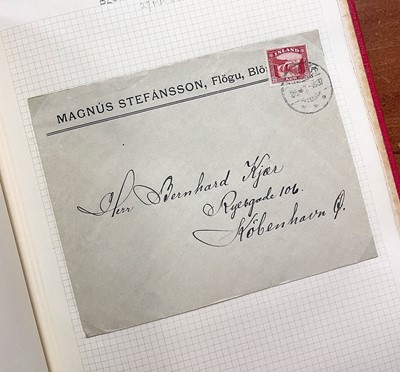 MAGNÚS STEFÁNSSON, Flögu, Blö
ISLAND
Herr Bernhard Kjær
Ryesgade 106.
København Ø.